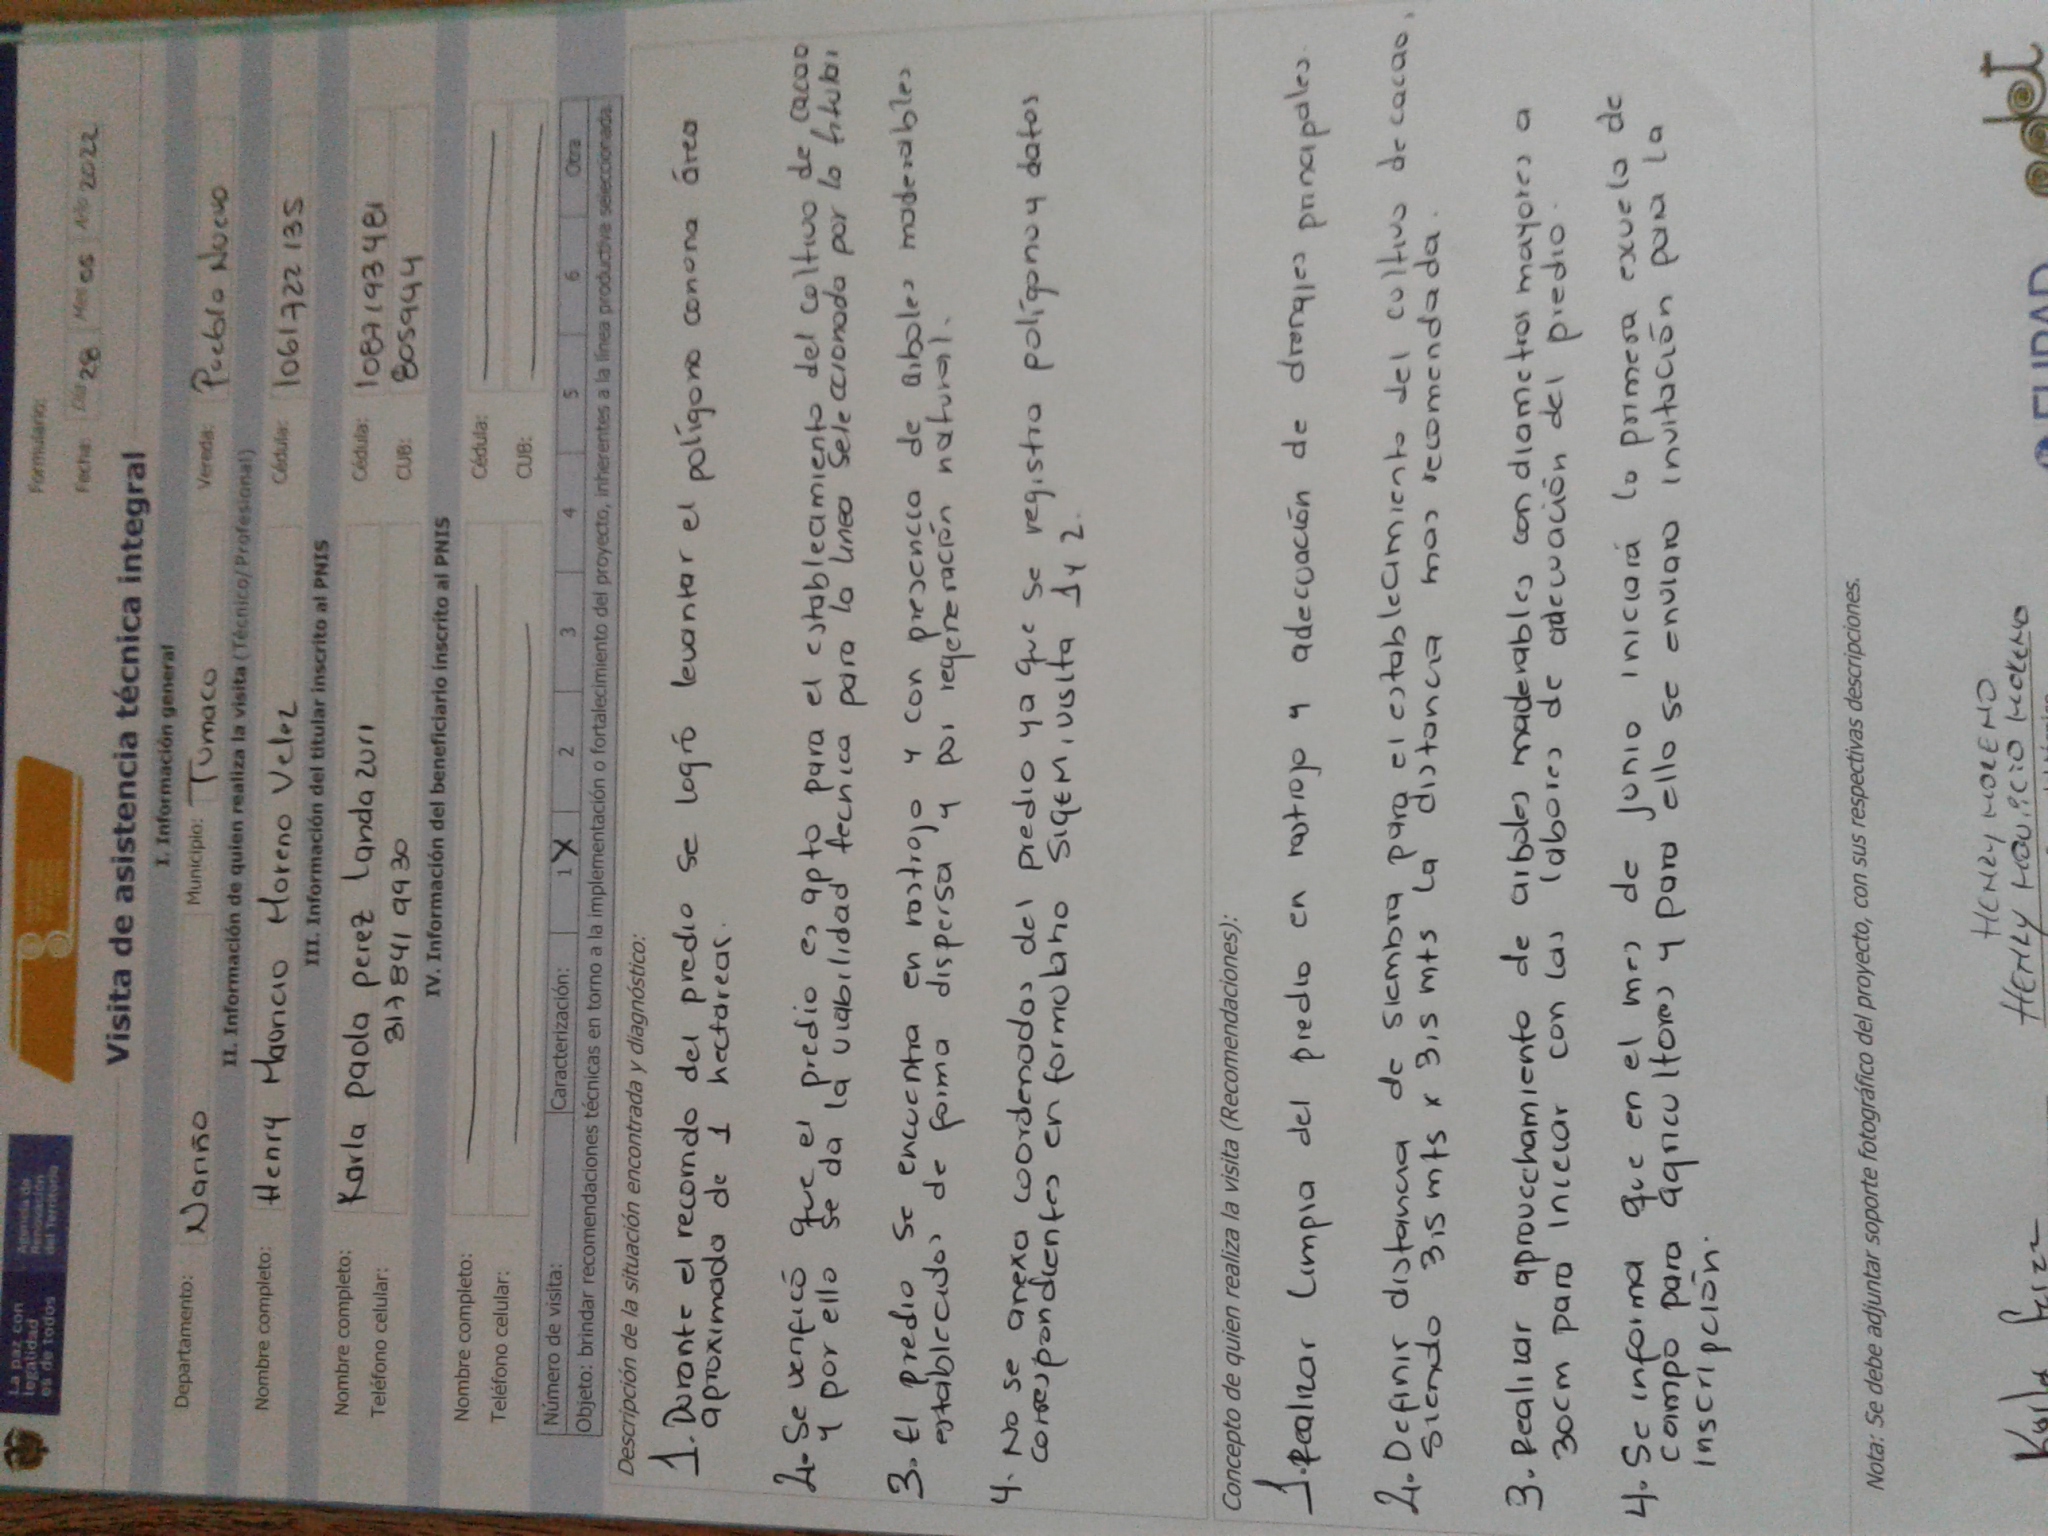 La paz con
legalidad
es de todos
Agencia de
Renovación
del Territorio
Formulario:
Visita de asistencia técnica integral
Fecha: Día 28 Mes 05 Año 2022
I. Información general
Departamento: Nariño Municipio: Tumaco Vereda: Pueblo Nuevo
II. Información de quien realiza la visita (Técnico/Profesional)
Nombre completo: Henry Mauricio Moreno Velez Cédula: 1061722135
III. Información del titular inscrito al PNIS
Nombre completo: Karla paola perez Landazuri Cédula: 1087193481
Teléfono celular: 317841 9930 CUB: 805944
IV. Información del beneficiario inscrito al PNIS
Nombre completo: Cédula:
Teléfono celular: CUB:
Número de visita: Caracterización: 1 X 2 3 4 5 6 Otra
Objeto: brindar recomendaciones técnicas en torno a la implementación o fortalecimiento del proyecto, inherentes a la línea productiva seleccionada.
Descripción de la situación encontrada y diagnóstico:
1. Durante el recorrido del predio se logró levantar el polígono con una área
aproximada de 1 hectareas.
2. Se verificó que el predio es apto para el establecimiento del cultivo de cacao
y por ello se da la viabilidad tecnica para la linea seleccionada por la titular
3. El predio se encuentra en rastrojo y con presencia de arboles maderables
establecidos de forma dispersa y por regeneración natural.
4. No se anexa coordenadas del predio ya que se registra polígono y datos
correspondientes en formulario SIGEM, visita 1 y 2.
Concepto de quien realiza la visita (Recomendaciones):
1. Realizar limpia del predio en rastrojo y adecuación de drenajes principales.
2. Definir distancia de siembra para el establecimiento del cultivo de cacao,
siendo 3,5 mts x 3,5 mts la distancia mas recomendada.
3. Realizar aprovechamiento de arboles maderables con diametros mayores a
30cm para iniciar con las labores de adecuación del predio.
4. Se informa que en el mes de junio iniciará la primera escuela de
campo para agricultores y para ello se enviara invitación para la
inscripción.
Nota: Se debe adjuntar soporte fotográfico del proyecto, con sus respectivas descripciones.
HENRY MORENO
HENRY MAURICIO MORENO
Karla Perez